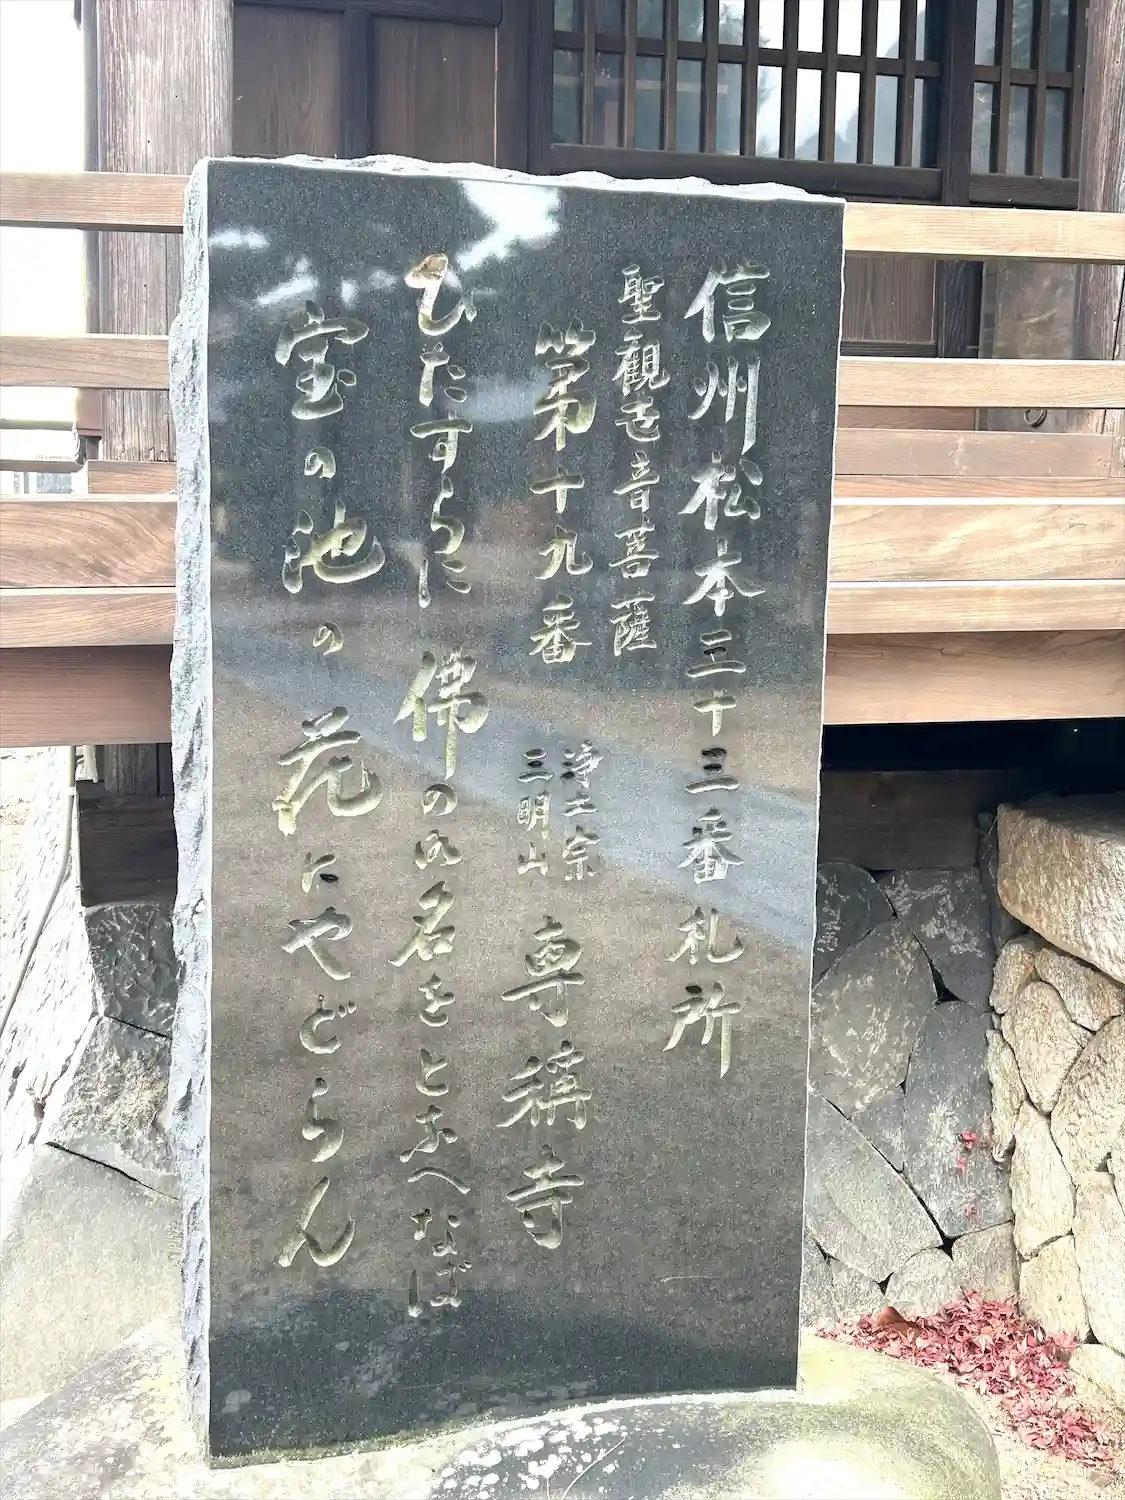 信州松本三十三番札所
聖観世音菩薩
第十九番
浄土宗
三明山
専称寺
ひたすらに 佛のみ名をとなへなば
宝の池の 花にやどらん